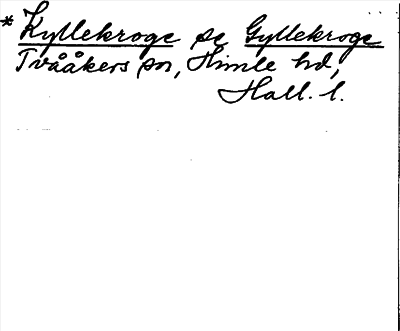 * Kyllekroge se Gyllekroge
Tvååkers sn, Himle hd,
Hall. l.